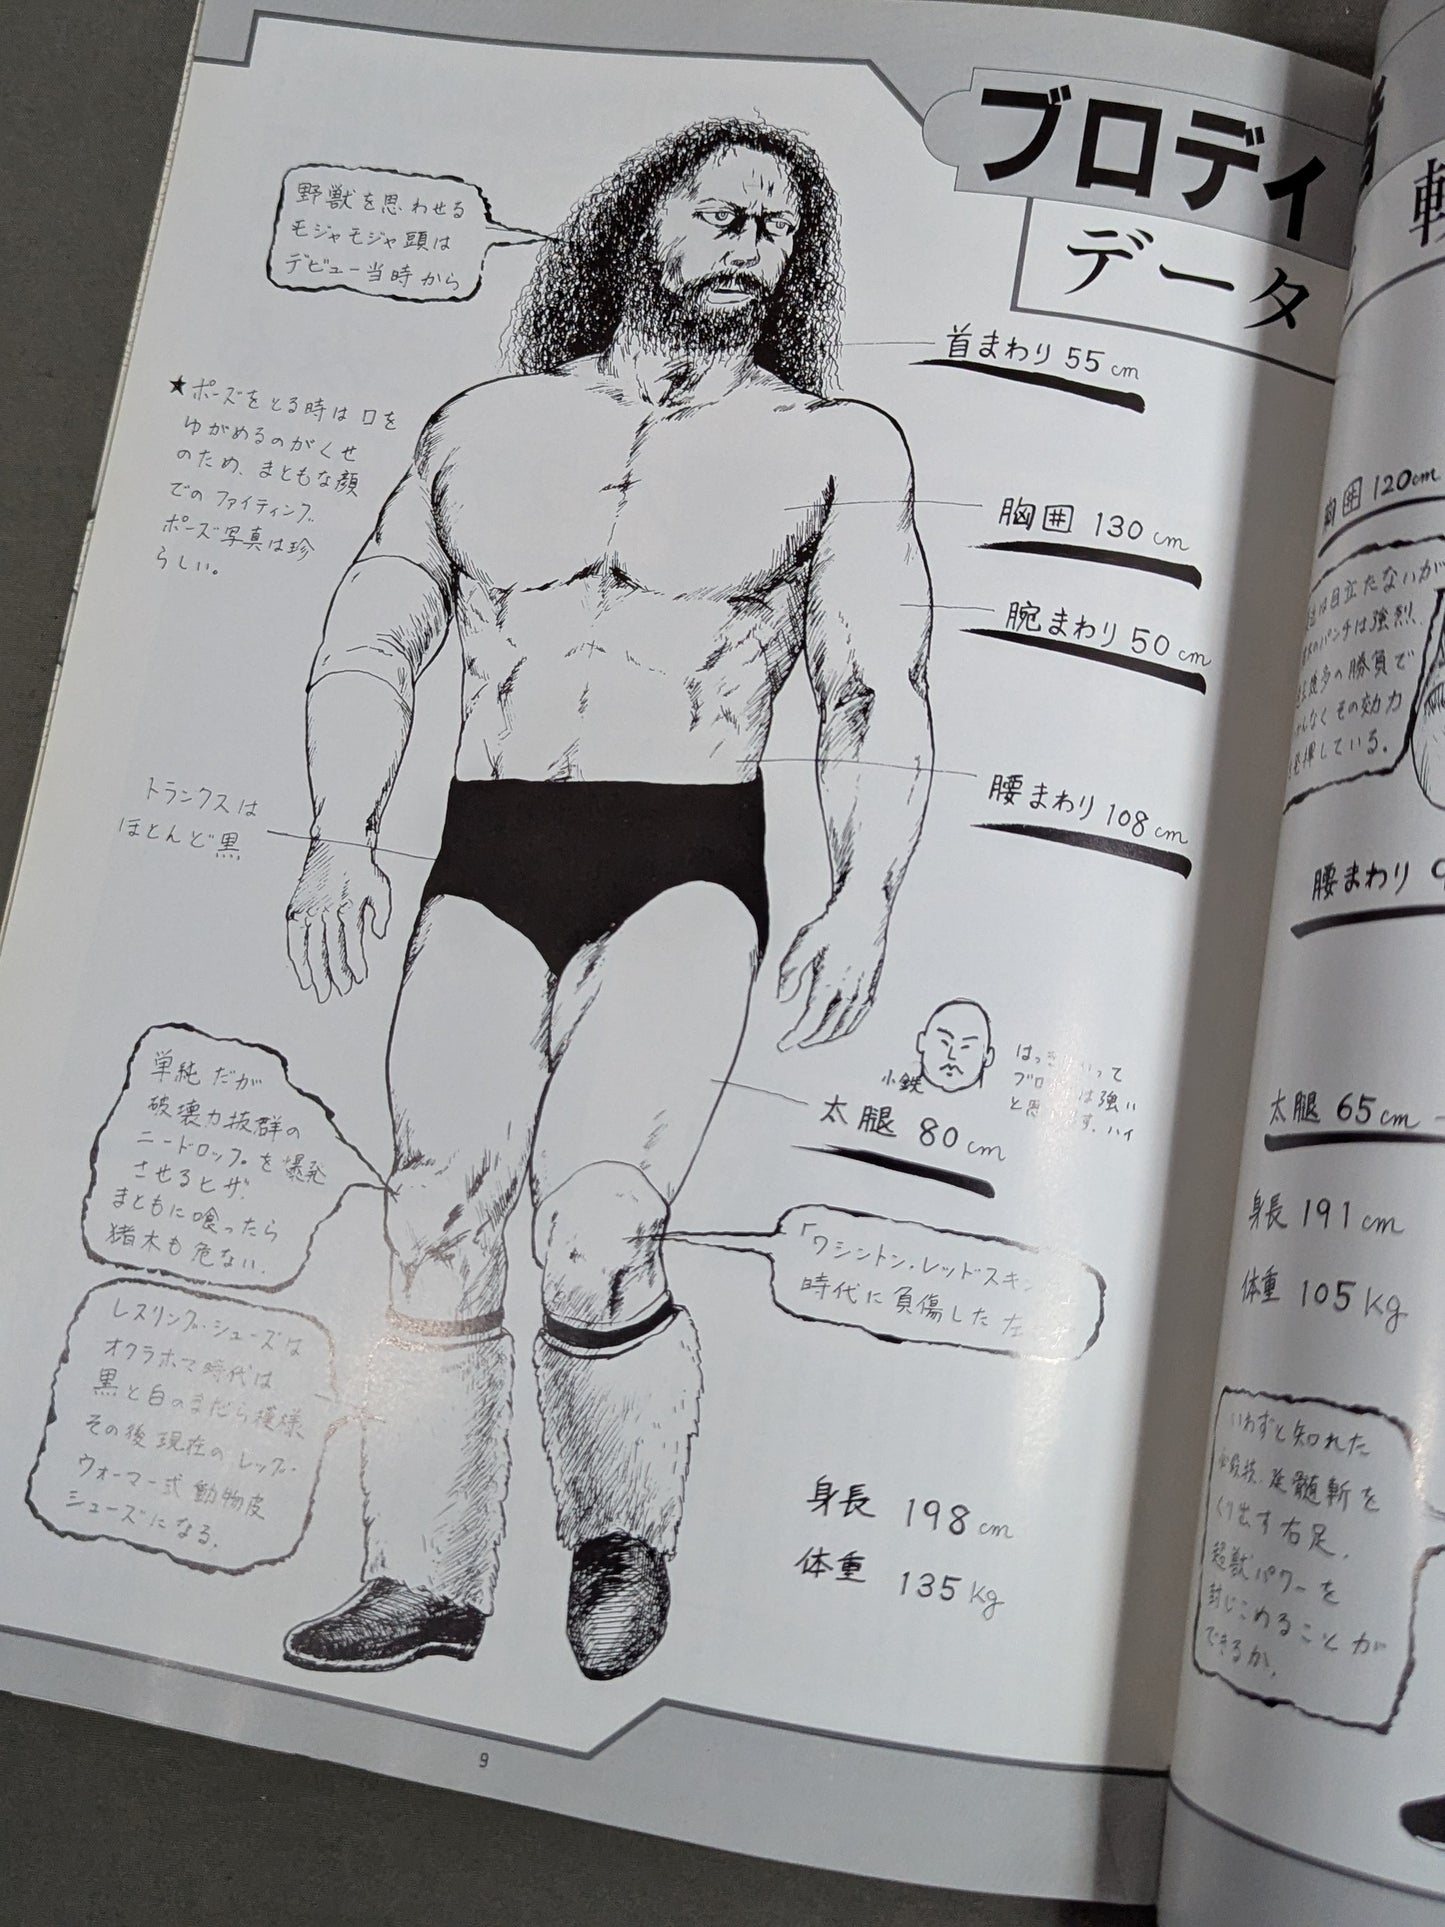 ブロディ
データ
野獣を思わせる
モジャモジャ頭は
デビュー当時から
首まわり 55cm
★ポーズをとる時は口を
ゆがめるのがくせ
のため、まともな顔
でのファイティング
ポーズ写真は珍
らしい。
胸囲 130cm
腕まわり 50cm
トランクスは
ほとんど黒
腰まわり 108cm
小鉄
は
って
は強い
ハイ
太腿 80cm
単純だが
破壊力抜群の
ニードロップを爆発
させるヒザ。
まともに喰ったら
猪木も危ない。
「ワシントン・レッドスキン
時代に負傷した左
レスリング・シューズは
オクラホマ時代は
黒と白のまだら模様
その後現在のレッグ・
ウォーマー式動物皮
シューズになる。
身長 198cm
体重 135kg
9
胸囲 120cm
は目立たないが
のパンチは強烈。
の勝負で
なくその効力
発揮している。
腰まわり 9
太腿 65cm
身長 191cm
体重 105kg
いわずと知れた
必殺技、延髄斬を
くり出す右足。
超獣パワーを
封じこめることが
できるか。